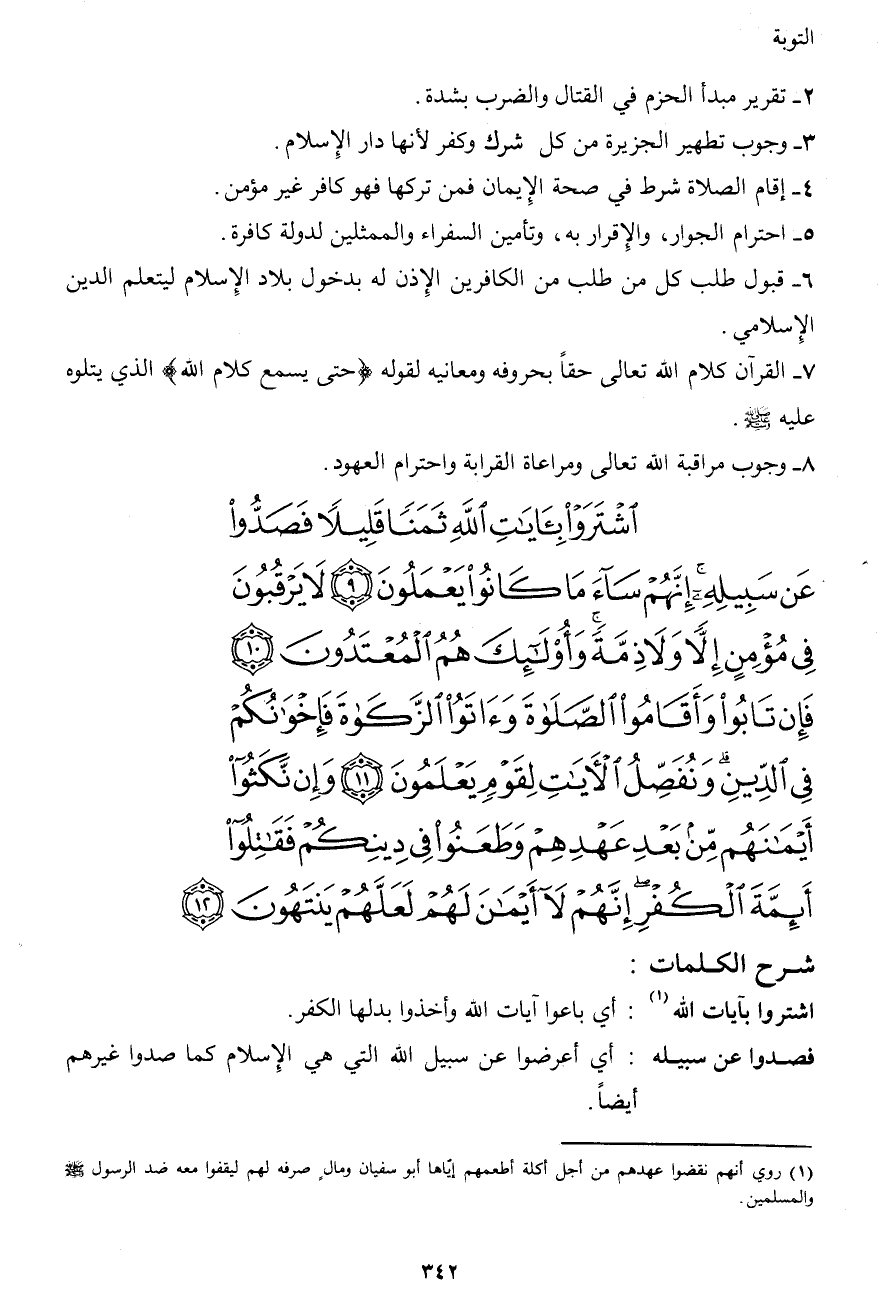 التوبة
٢ـ تقرير مبدأ الحزم في القتال والضرب بشدة.
٣ـ وجوب تطهير الجزيرة من كل شرك وكفر لأنها دار الإسلام.
٤ـ إقام الصلاة شرط في صحة الإيمان فمن تركها فهو كافر غير مؤمن.
٥ـ احترام الجوار، والإقرار به، وتأمين السفراء والممثلين لدولة كافرة.
٦ـ قبول طلب كل من طلب من الكافرين الإذن له بدخول بلاد الإسلام ليتعلم الدين
الإسلامي.
٧ـ القرآن كلام الله تعالى حقاً بحروفه ومعانيه لقوله ﴿حتى يسمع كلام الله﴾ الذي يتلوه
عليه ﷺ.
٨ـ وجوب مراقبة الله تعالى ومراعاة القرابة واحترام العهود.
ٱشۡتَرَوۡاْ بِـَٔايَٰتِ ٱللَّهِ ثَمَنٗا قَلِيلٗا فَصَدُّواْ
عَن سَبِيلِهِۦٓۚ إِنَّهُمۡ سَآءَ مَا كَانُواْ يَعۡمَلُونَ ٩ لَا يَرۡقُبُونَ
فِي مُؤۡمِنٍ إِلّٗا وَلَا ذِمَّةٗۚ وَأُوْلَٰٓئِكَ هُمُ ٱلۡمُعۡتَدُونَ ١٠
فَإِن تَابُواْ وَأَقَامُواْ ٱلصَّلَوٰةَ وَءَاتَوُاْ ٱلزَّكَوٰةَ فَإِخۡوَٰنُكُمۡ
فِي ٱلدِّينِۗ وَنُفَصِّلُ ٱلۡأٓيَٰتِ لِقَوۡمٖ يَعۡلَمُونَ ١١ وَإِن نَّكَثُوٓاْ
أَيۡمَٰنَهُم مِّنۢ بَعۡدِ عَهۡدِهِمۡ وَطَعَنُواْ فِي دِينِكُمۡ فَقَٰتِلُوٓاْ
أَئِمَّةَ ٱلۡكُفۡرِ إِنَّهُمۡ لَآ أَيۡمَٰنَ لَهُمۡ لَعَلَّهُمۡ يَنتَهُونَ ١٢
شرح الكلمات :
اشتروا بآيات الله (١) : أي باعوا آيات الله وأخذوا بدلها الكفر.
فصدوا عن سبيله : أي أعرضوا عن سبيل الله التي هي الإسلام كما صدوا غيرهم
أيضاً.
(١) روي أنهم نقضوا عهدهم من أجل أكلة أطعمهم إيّاها أبو سفيان ومالٍ صرفه لهم ليقفوا معه ضد الرسول ﷺ
والمسلمين.
٣٤٢